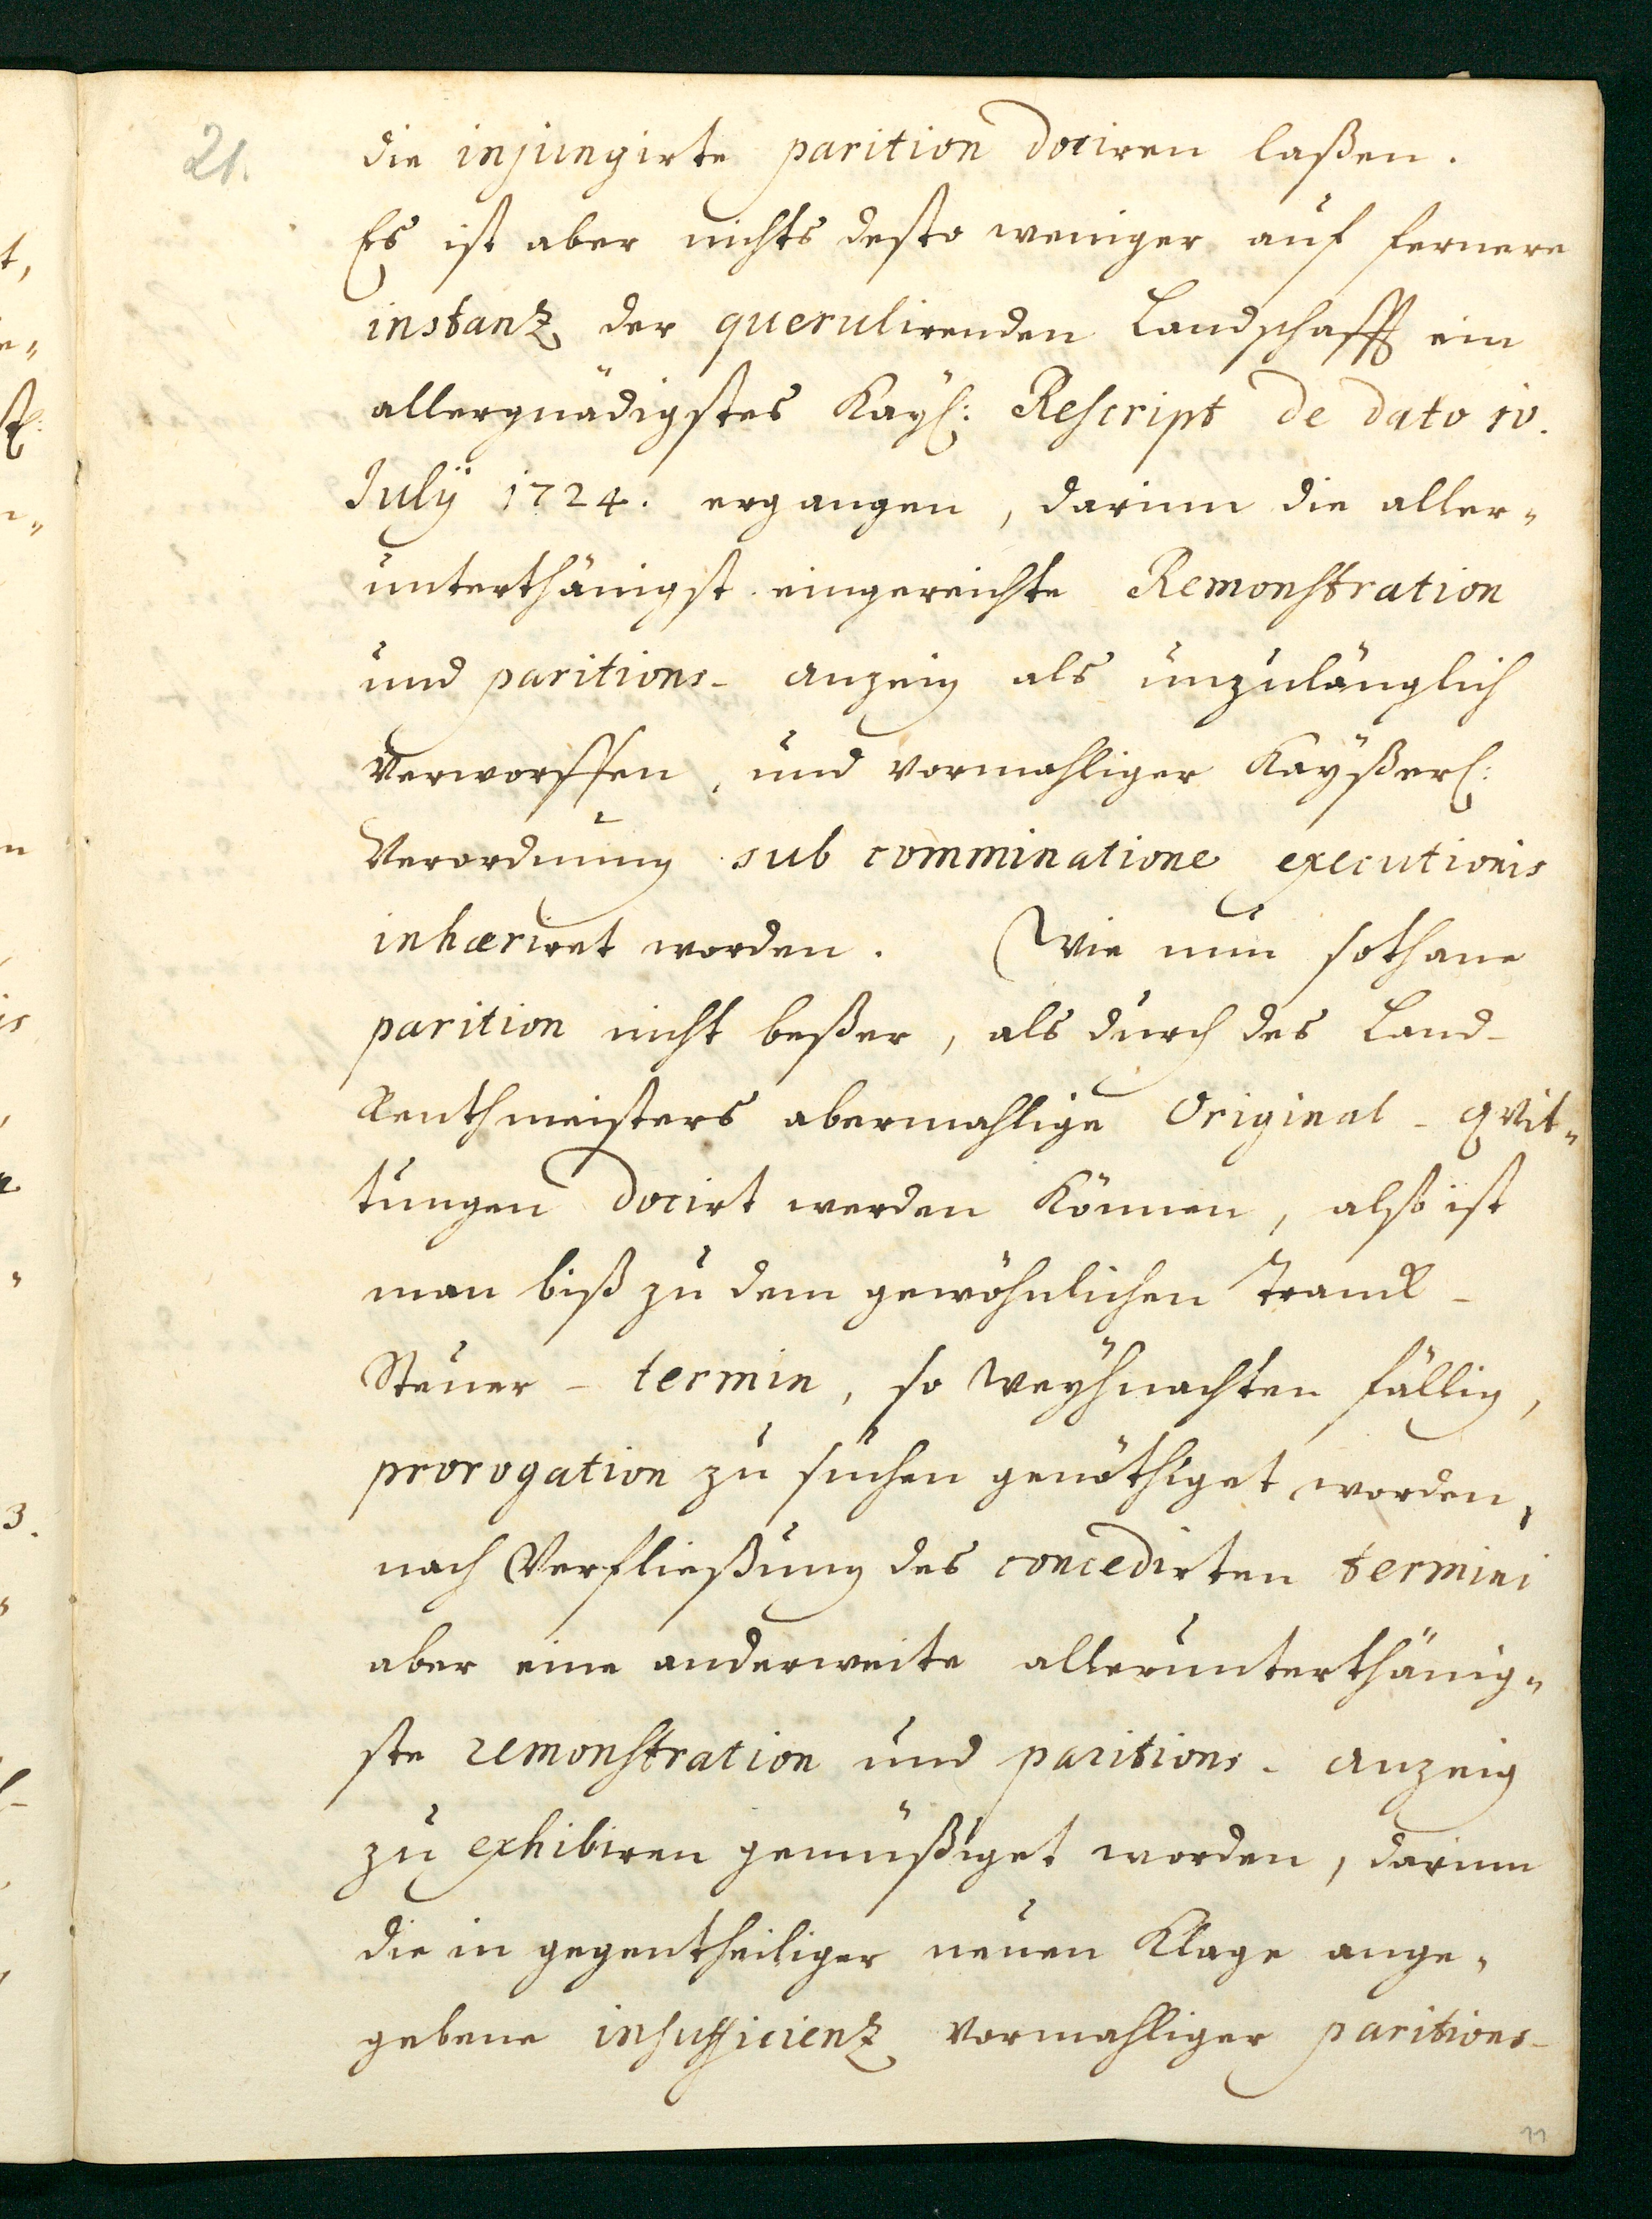 21.
die injungirte parition dociren laßen.
Es ist aber nichts desto weniger auf fernere
instanz der querulirenden Landschafft ein
allergnädigstes Kayſ: Reſcript de dato 10.
Julÿ 1724. ergangen, darinn die aller„
unterthänigst eingereichte Remonſtration
und paritions- anzeig als unzulänglich
Verworffen, und vormahliger Kayßerl:
Verordnung sub comminatione executionis
inhæriret worden. Wie nun sothane
parition nicht beßer, als durch des Land-
Renthmeisters abermahlige Original- qvit„
tungen docirt werden können, also ist
man biß zu dem gewöhnlichen Tranck-
Steuer- termin, so Weÿhnachten fällig,
prorogation zu suchen genöthiget worden,
nach Verfließung des concedirten termini
aber eine anderweite allerunterthänig„
ste remonſtration und paritions- anzeig
zu exhibiren gemüßiget worden, darinn
die in gegentheiliger neuen Klage ange„
gebene inſufficienz vormahliger paritions-
11